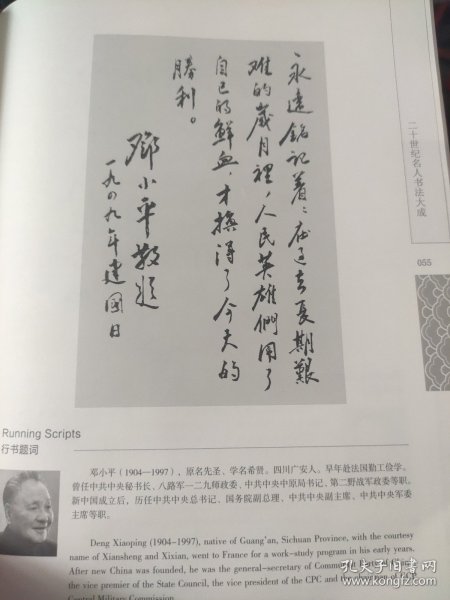 永遠銘記着：在過去長期艱
难的歲月裡，人民英雄們用了
自己的鮮血，才換得了今天的
勝利。
鄧小平敬題
一九四九年建國日
二十世纪名人书法大成
055
Running Scripts
行书题词
邓小平（1904—1997），原名先圣、学名希贤。四川广安人。早年赴法国勤工俭学。
曾任中共中央秘书长、八路军一二九师政委、中共中央中原局书记、第二野战军政委等职。
新中国成立后，历任中共中央总书记、国务院副总理、中共中央副主席、中共中央军委
主席等职。
Deng Xiaoping (1904-1997), native of Guang'an, Sichuan Province, with the courtesy
name of Xiansheng and Xixian, went to France for a work-study program in his early years.
After new China was founded, he was the general-secretary of Communist Party
the vice premier of the State Council, the vice president of the CPC and
Central Military Commission.
孔夫子旧书网